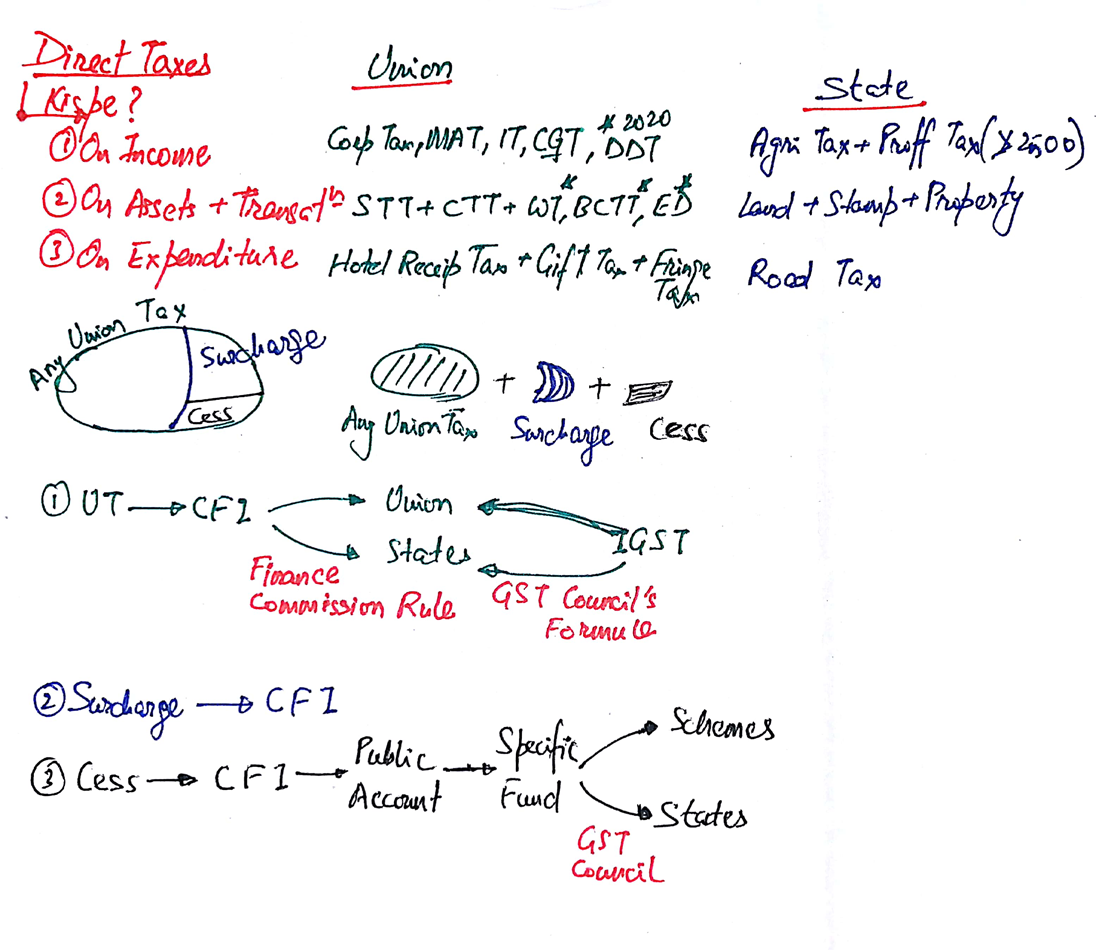 Direct Taxes
Union
State
Kispe?
① On Income
Corp Tax, MAT, IT, CGT, DDT
* 2020
Agri Tax + Proff Tax (≯2500)
② On Assets + Transactn
STT + CTT + WT*, BCTT*, ED*
Land + Stamp + Property
③ On Expenditure
Hotel Receip Tax + Gift Tax + Fringe Tax
Road Tax
Any Union Tax
Surcharge
Cess
+ +
Any Union Tax Surcharge Cess
① UT → CFI
Union
States
IGST
Finance
Commission Rule
GST Council's
Formule
② Surcharge → CFI
③ Cess → CFI → Public Account → Specific Fund
Schemes
States
GST
Council